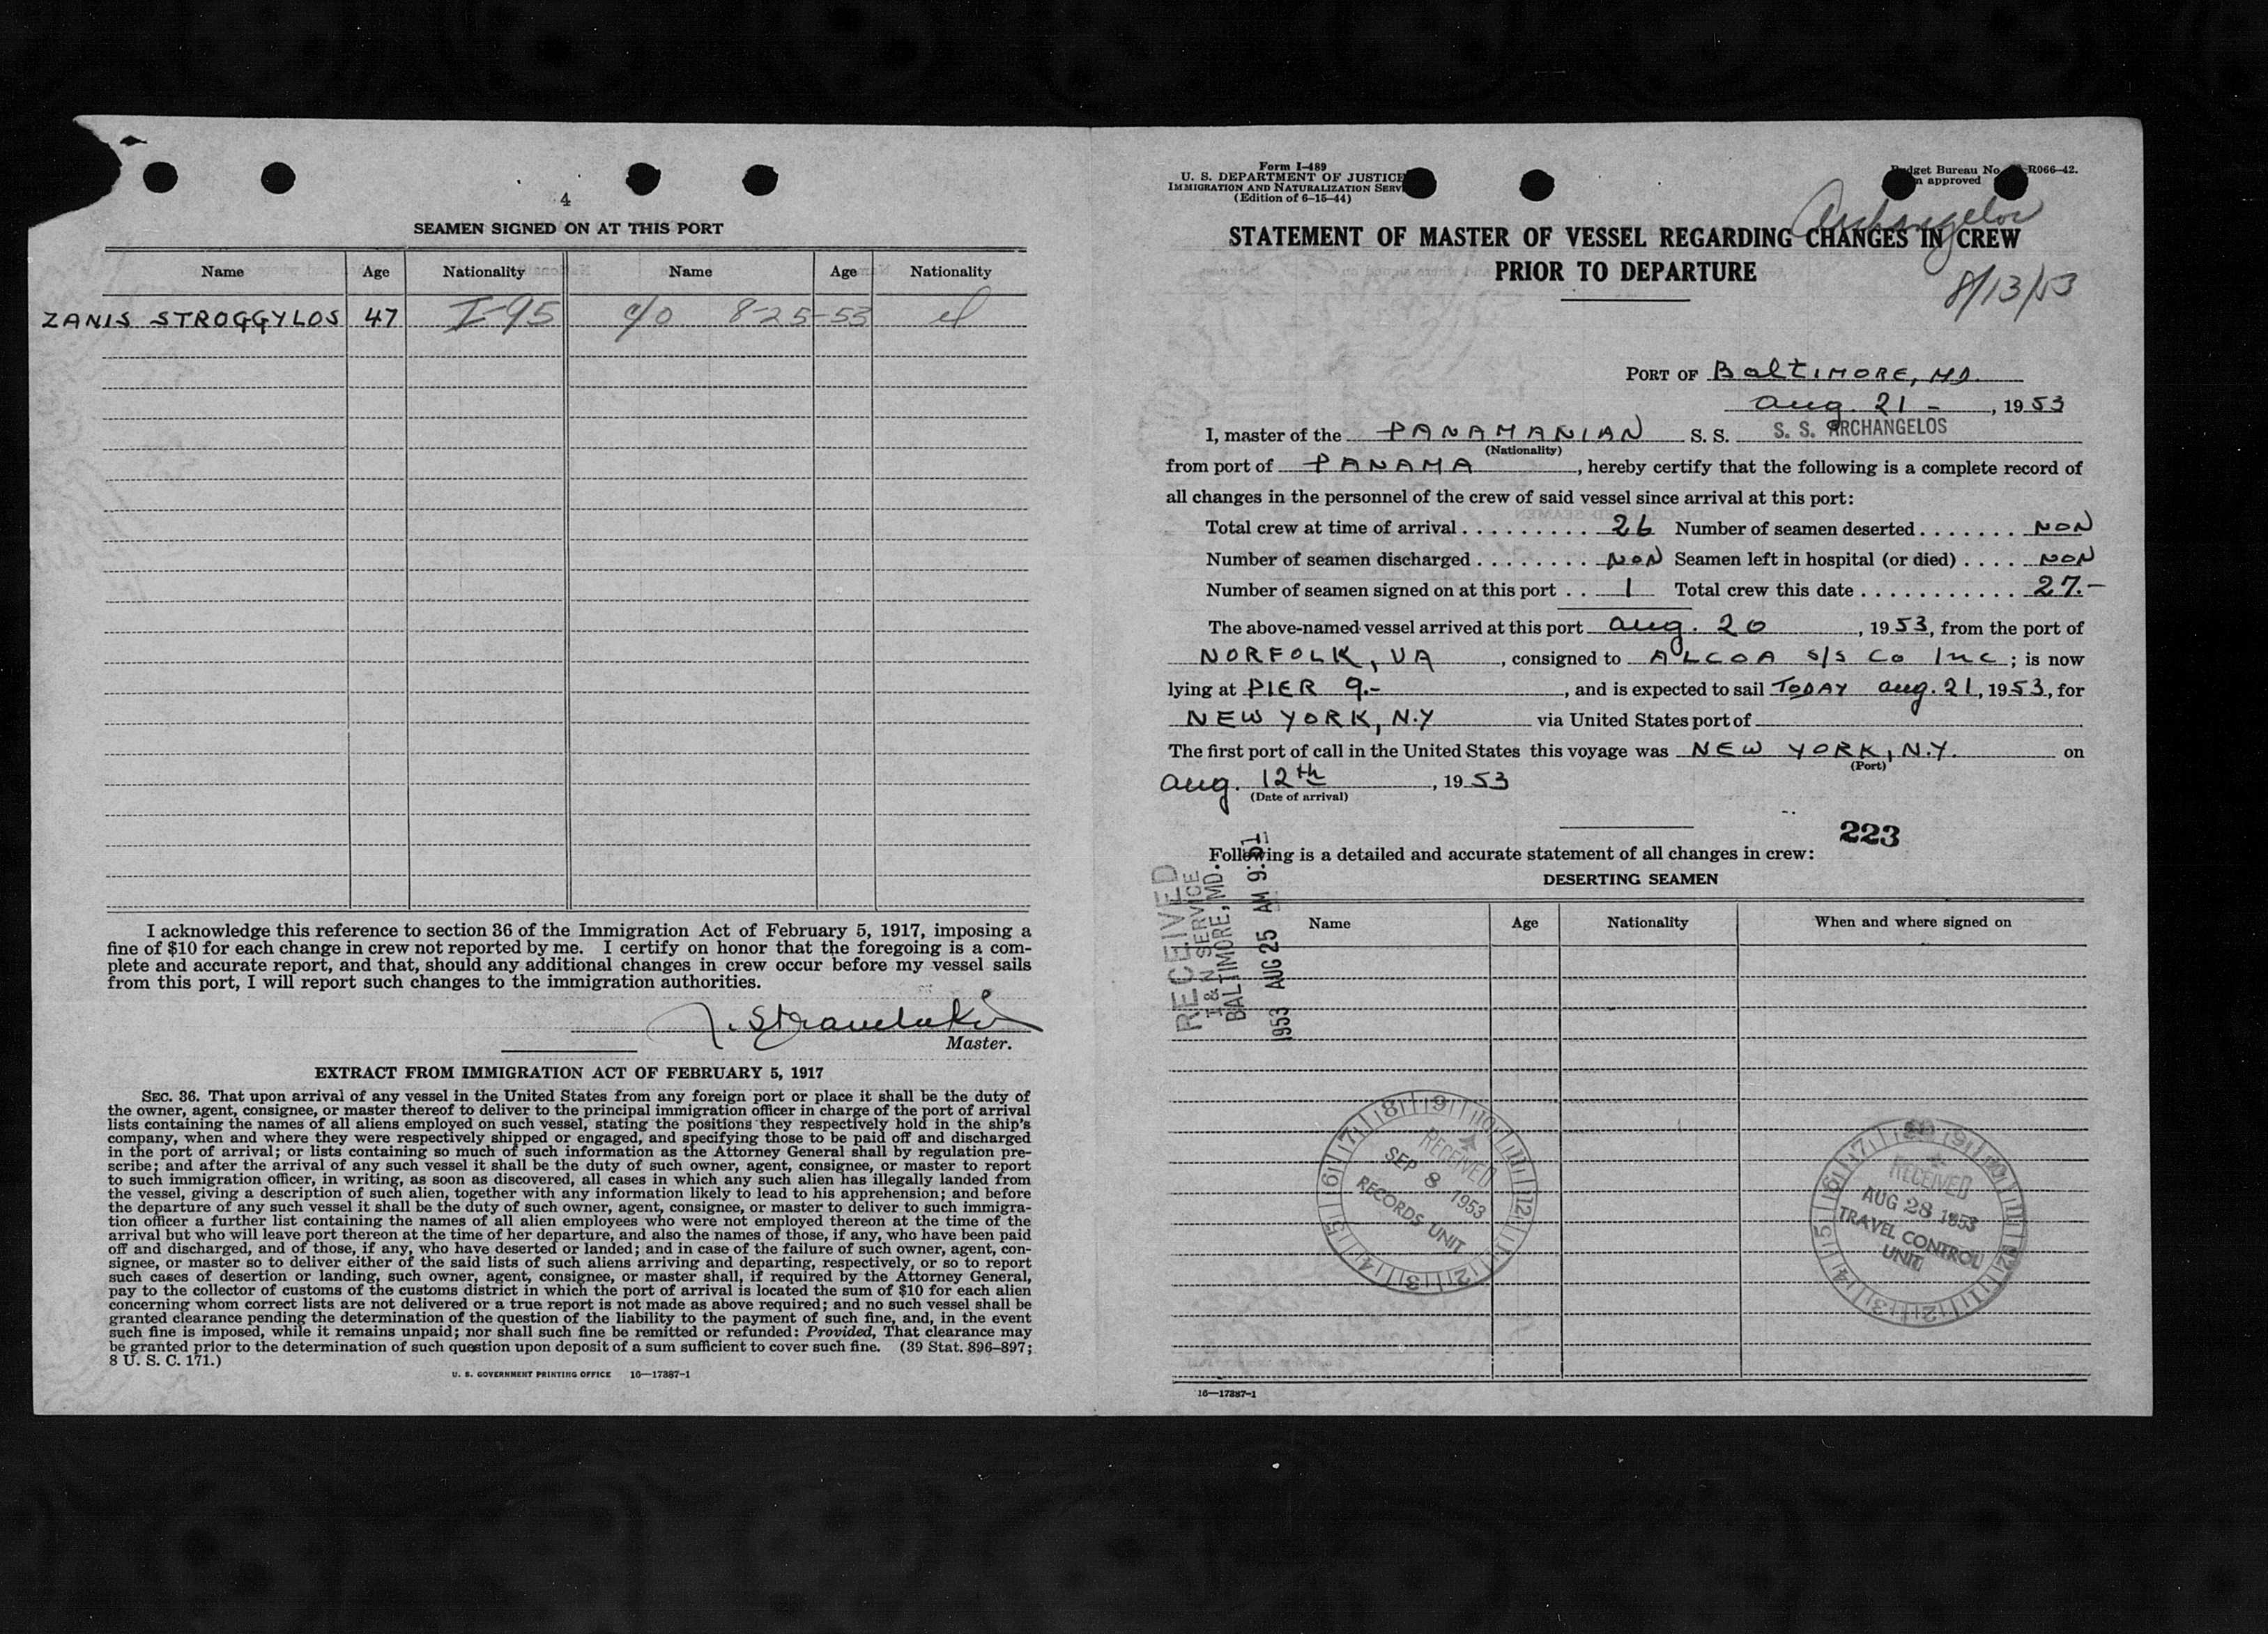 4
SEAMEN SIGNED ON AT THIS PORT
Name Age Nationality Name Age Nationality
ZANIS STROGGYLOS 47 I-95 c/o 8-25-53
I acknowledge this reference to section 36 of the Immigration Act of February 5, 1917, imposing a
fine of $10 for each change in crew not reported by me. I certify on honor that the foregoing is a com-
plete and accurate report, and that, should any additional changes in crew occur before my vessel sails
from this port, I will report such changes to the immigration authorities.
Master.
EXTRACT FROM IMMIGRATION ACT OF FEBRUARY 5, 1917
SEC. 36. That upon arrival of any vessel in the United States from any foreign port or place it shall be the duty of
the owner, agent, consignee, or master thereof to deliver to the principal immigration officer in charge of the port of arrival
lists containing the names of all aliens employed on such vessel, stating the positions they respectively hold in the ship's
company, when and where they were respectively shipped or engaged, and specifying those to be paid off and discharged
in the port of arrival; or lists containing so much of such information as the Attorney General shall by regulation pre-
scribe; and after the arrival of any such vessel it shall be the duty of such owner, agent, consignee, or master to report
to such immigration officer, in writing, as soon as discovered, all cases in which any such alien has illegally landed from
the vessel, giving a description of such alien, together with any information likely to lead to his apprehension; and before
the departure of any such vessel it shall be the duty of such owner, agent, consignee, or master to deliver to such immigra-
tion officer a further list containing the names of all alien employees who were not employed thereon at the time of the
arrival but who will leave port thereon at the time of her departure, and also the names of those, if any, who have been paid
off and discharged, and of those, if any, who have deserted or landed; and in case of the failure of such owner, agent, con-
signee, or master so to deliver either of the said lists of such aliens arriving and departing, respectively, or so to report
such cases of desertion or landing, such owner, agent, consignee, or master shall, if required by the Attorney General,
pay to the collector of customs of the customs district in which the port of arrival is located the sum of $10 for each alien
concerning whom correct lists are not delivered or a true report is not made as above required; and no such vessel shall be
granted clearance pending the determination of the question of the liability to the payment of such fine, and, in the event
such fine is imposed, while it remains unpaid; nor shall such fine be remitted or refunded: Provided, That clearance may
be granted prior to the determination of such question upon deposit of a sum sufficient to cover such fine. (39 Stat. 896-897;
8 U. S. C. 171.)
U. S. GOVERNMENT PRINTING OFFICE 16—17387-1
Form I-489
U. S. DEPARTMENT OF JUSTICE
IMMIGRATION AND NATURALIZATION SERV
(Edition of 6-15-44)
Budget Bureau No. R066-42.
approved
Archangelos
STATEMENT OF MASTER OF VESSEL REGARDING CHANGES IN CREW
PRIOR TO DEPARTURE
8/13/53
PORT OF BALTIMORE, MD.
Aug. 21 - , 1953
I, master of the PANAMANIAN S. S. S. S. ARCHANGELOS
(Nationality)
from port of PANAMA, hereby certify that the following is a complete record of
all changes in the personnel of the crew of said vessel since arrival at this port:
Total crew at time of arrival . . . . . . . . . . 26 Number of seamen deserted . . . . . . . NON
Number of seamen discharged . . . . . . . . NON Seamen left in hospital (or died) . . . . NON
Number of seamen signed on at this port . . 1 Total crew this date . . . . . . . . . . . . 27.-
The above-named vessel arrived at this port Aug. 20, 1953, from the port of
NORFOLK, VA, consigned to ALCOA S/S Co Inc; is now
lying at PIER 9.-, and is expected to sail TODAY Aug. 21, 1953, for
NEW YORK, N.Y via United States port of
The first port of call in the United States this voyage was NEW YORK, N.Y. on
(Port)
Aug. 12th, 1953
(Date of arrival)
223
Following is a detailed and accurate statement of all changes in crew:
DESERTING SEAMEN
Name Age Nationality When and where signed on
RECEIVED
I & N SERVICE
BALTIMORE, MD.
1953 AUG 25 AM 9:51
RECEIVED
SEP 8 1953
RECORDS UNIT
RECEIVED
AUG 28 1953
TRAVEL CONTROL
UNIT
16—17387-1